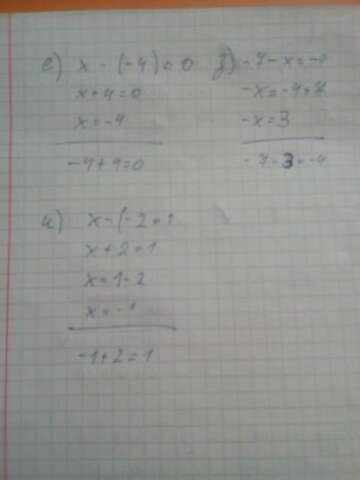 е) x - (-4) = 0
x + 4 = 0
x = -4
-4 + 4 = 0
-7 - x = -4
-x = -4 + 7
-x = 3
-7 - 3 = -4
и) x - (-2 = 1
x + 2 = 1
x = 1 - 2
x = -1
-1 + 2 = 1